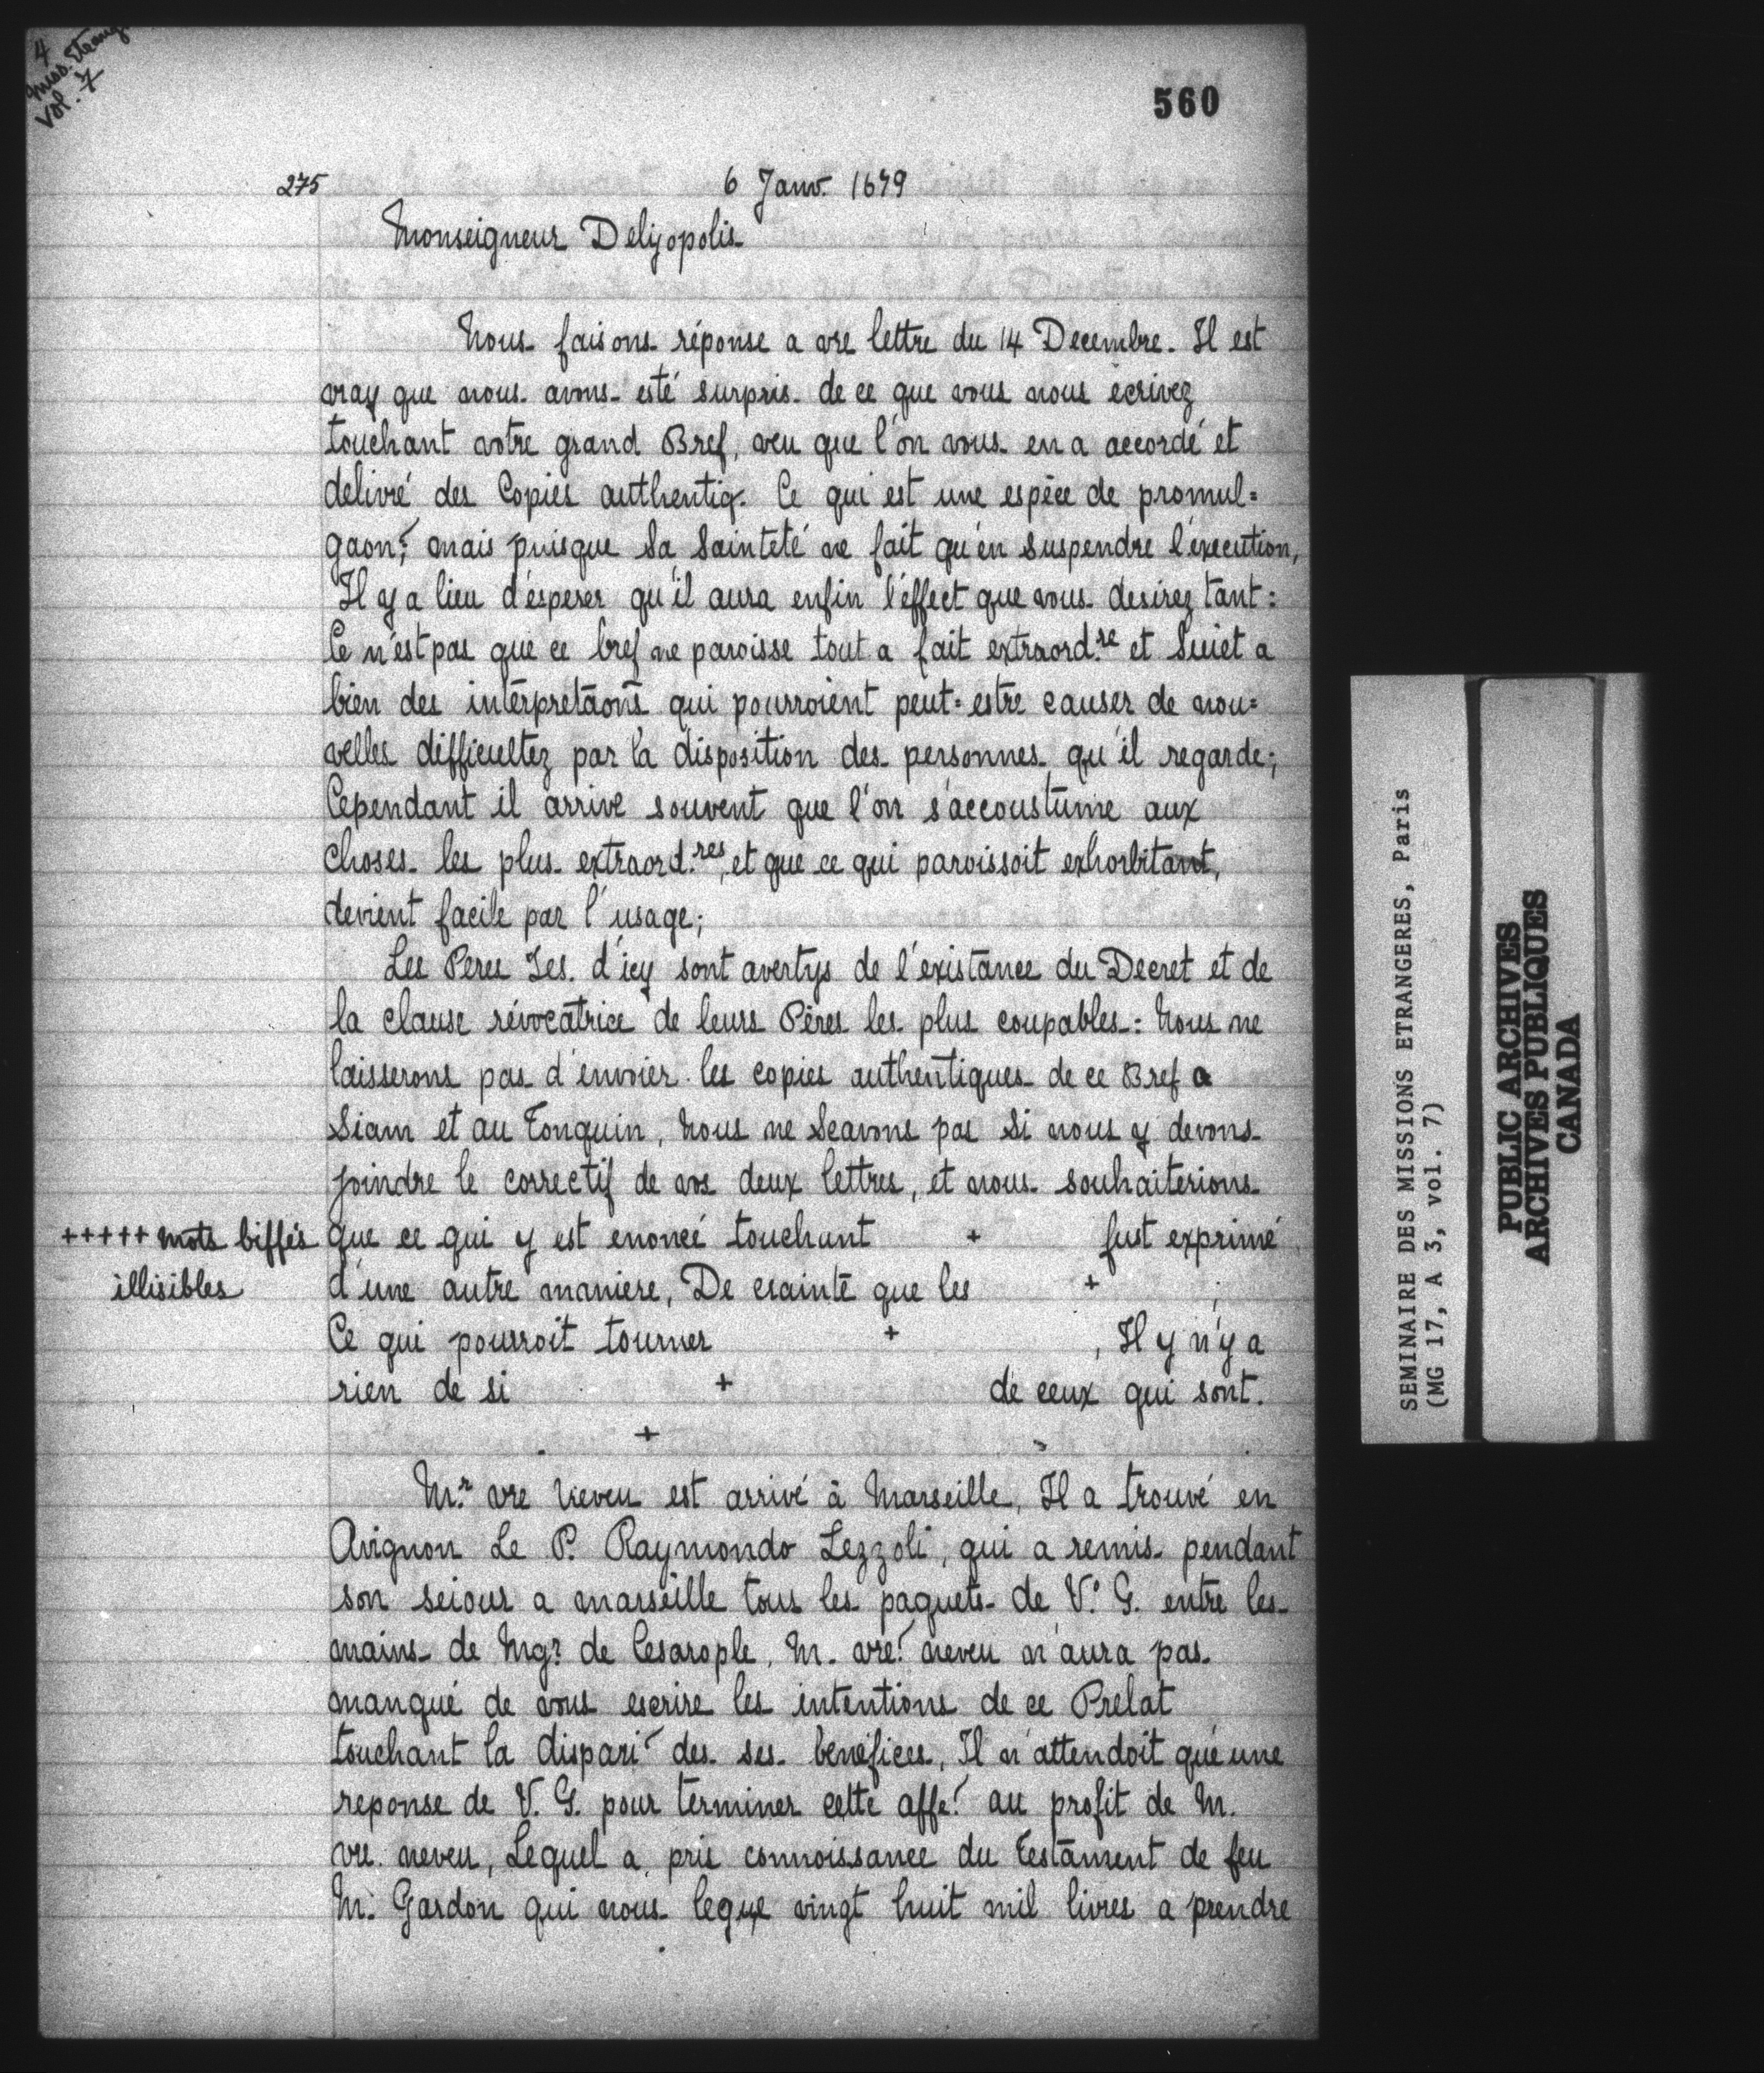 4
Miss. Etrang
Vol. 7
560
275
6 Janv. 1679
Monseigneur Deliyopolis
Nous faisons réponse a vre lettre du 14 Decembre. Il est
vray que nous avons esté surpris de ce que vous nous écrivez
touchant votre grand Bref, veu que l'on vous en a accordé et
delivré des Copies authentiq. Ce qui est une espèce de promul=
gaon; mais puisque Sa Sainteté ne fait qu'en suspendre l'execution,
Il y a lieu d'esperer qu'il aura enfin l'effect que vous desirez tant:
Ce n'est pas que ce bref ne paroisse tout a fait extraord.re et Suiet a
bien des interpretaons qui pourroient peut=estre causer de nou=
velles difficultez par la disposition des personnes qu'il regarde;
Cependant il arrive souvent que l'on s'accoustume aux
choses les plus extraord.res, et que ce qui paroissoit exhorbitant,
devient facile par l'usage;
Les Peres Jes. d'icy sont avertys de l'existance du Decret et de
la clause révocatrice de leurs Pères les plus coupables: Nous ne
laisserons pas d'envoier les copies authentiques de ce Bref a
Siam et au Tonquin, Nous ne Scavons pas Si nous y devons
joindre le correctif de vos deux lettres, et nous souhaiterions
+++++ mots biffés
illisibles
que ce qui y est enoncé touchant + fust exprimé
d'une autre maniere, De crainte que les + ;
Ce qui pourroit tourner + , Il y n'y a
rien de si + de ceux qui sont.
+
Mr. vre Neveu est arrivé à Marseille, Il a trouvé en
Avignon Le P. Raymondo Lezzoli, qui a remis pendant
son seiour a marseille tous les paquets de V. G. entre les
mains de Mgr. de Cesarople, M. vre. neveu n'aura pas
manqué de vous escrire les intentions de ce Prelat
touchant la dispari des ses benefices, Il n'attendoit qu'une
reponse de V. G. pour terminer cette affe. au profit de M.
vre. neveu, Lequel a pris connoissance du Testament de feu
M. Gardon qui nous legue vingt huit mil livres a prendre
SEMINAIRE DES MISSIONS ETRANGERES, Paris
(MG 17, A 3, vol. 7)
PUBLIC ARCHIVES
ARCHIVES PUBLIQUES
CANADA